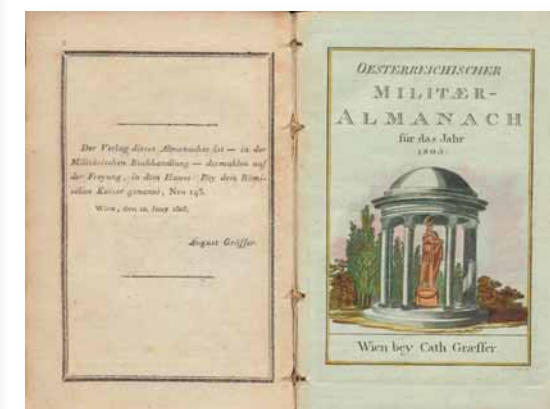 Der Verlag dieses Almanaches ist — in der
Militärischen Buchhandlung — dermahlen auf
der Freyung, in dem Hause: Bey dem Römi-
schen Kaiser genannt, Nro 145.
Wien, den
August Gräffer.
OESTERREICHISCHER
MILITÆR-
ALMANACH
für das Jahr
Wien bey Cath Græffer